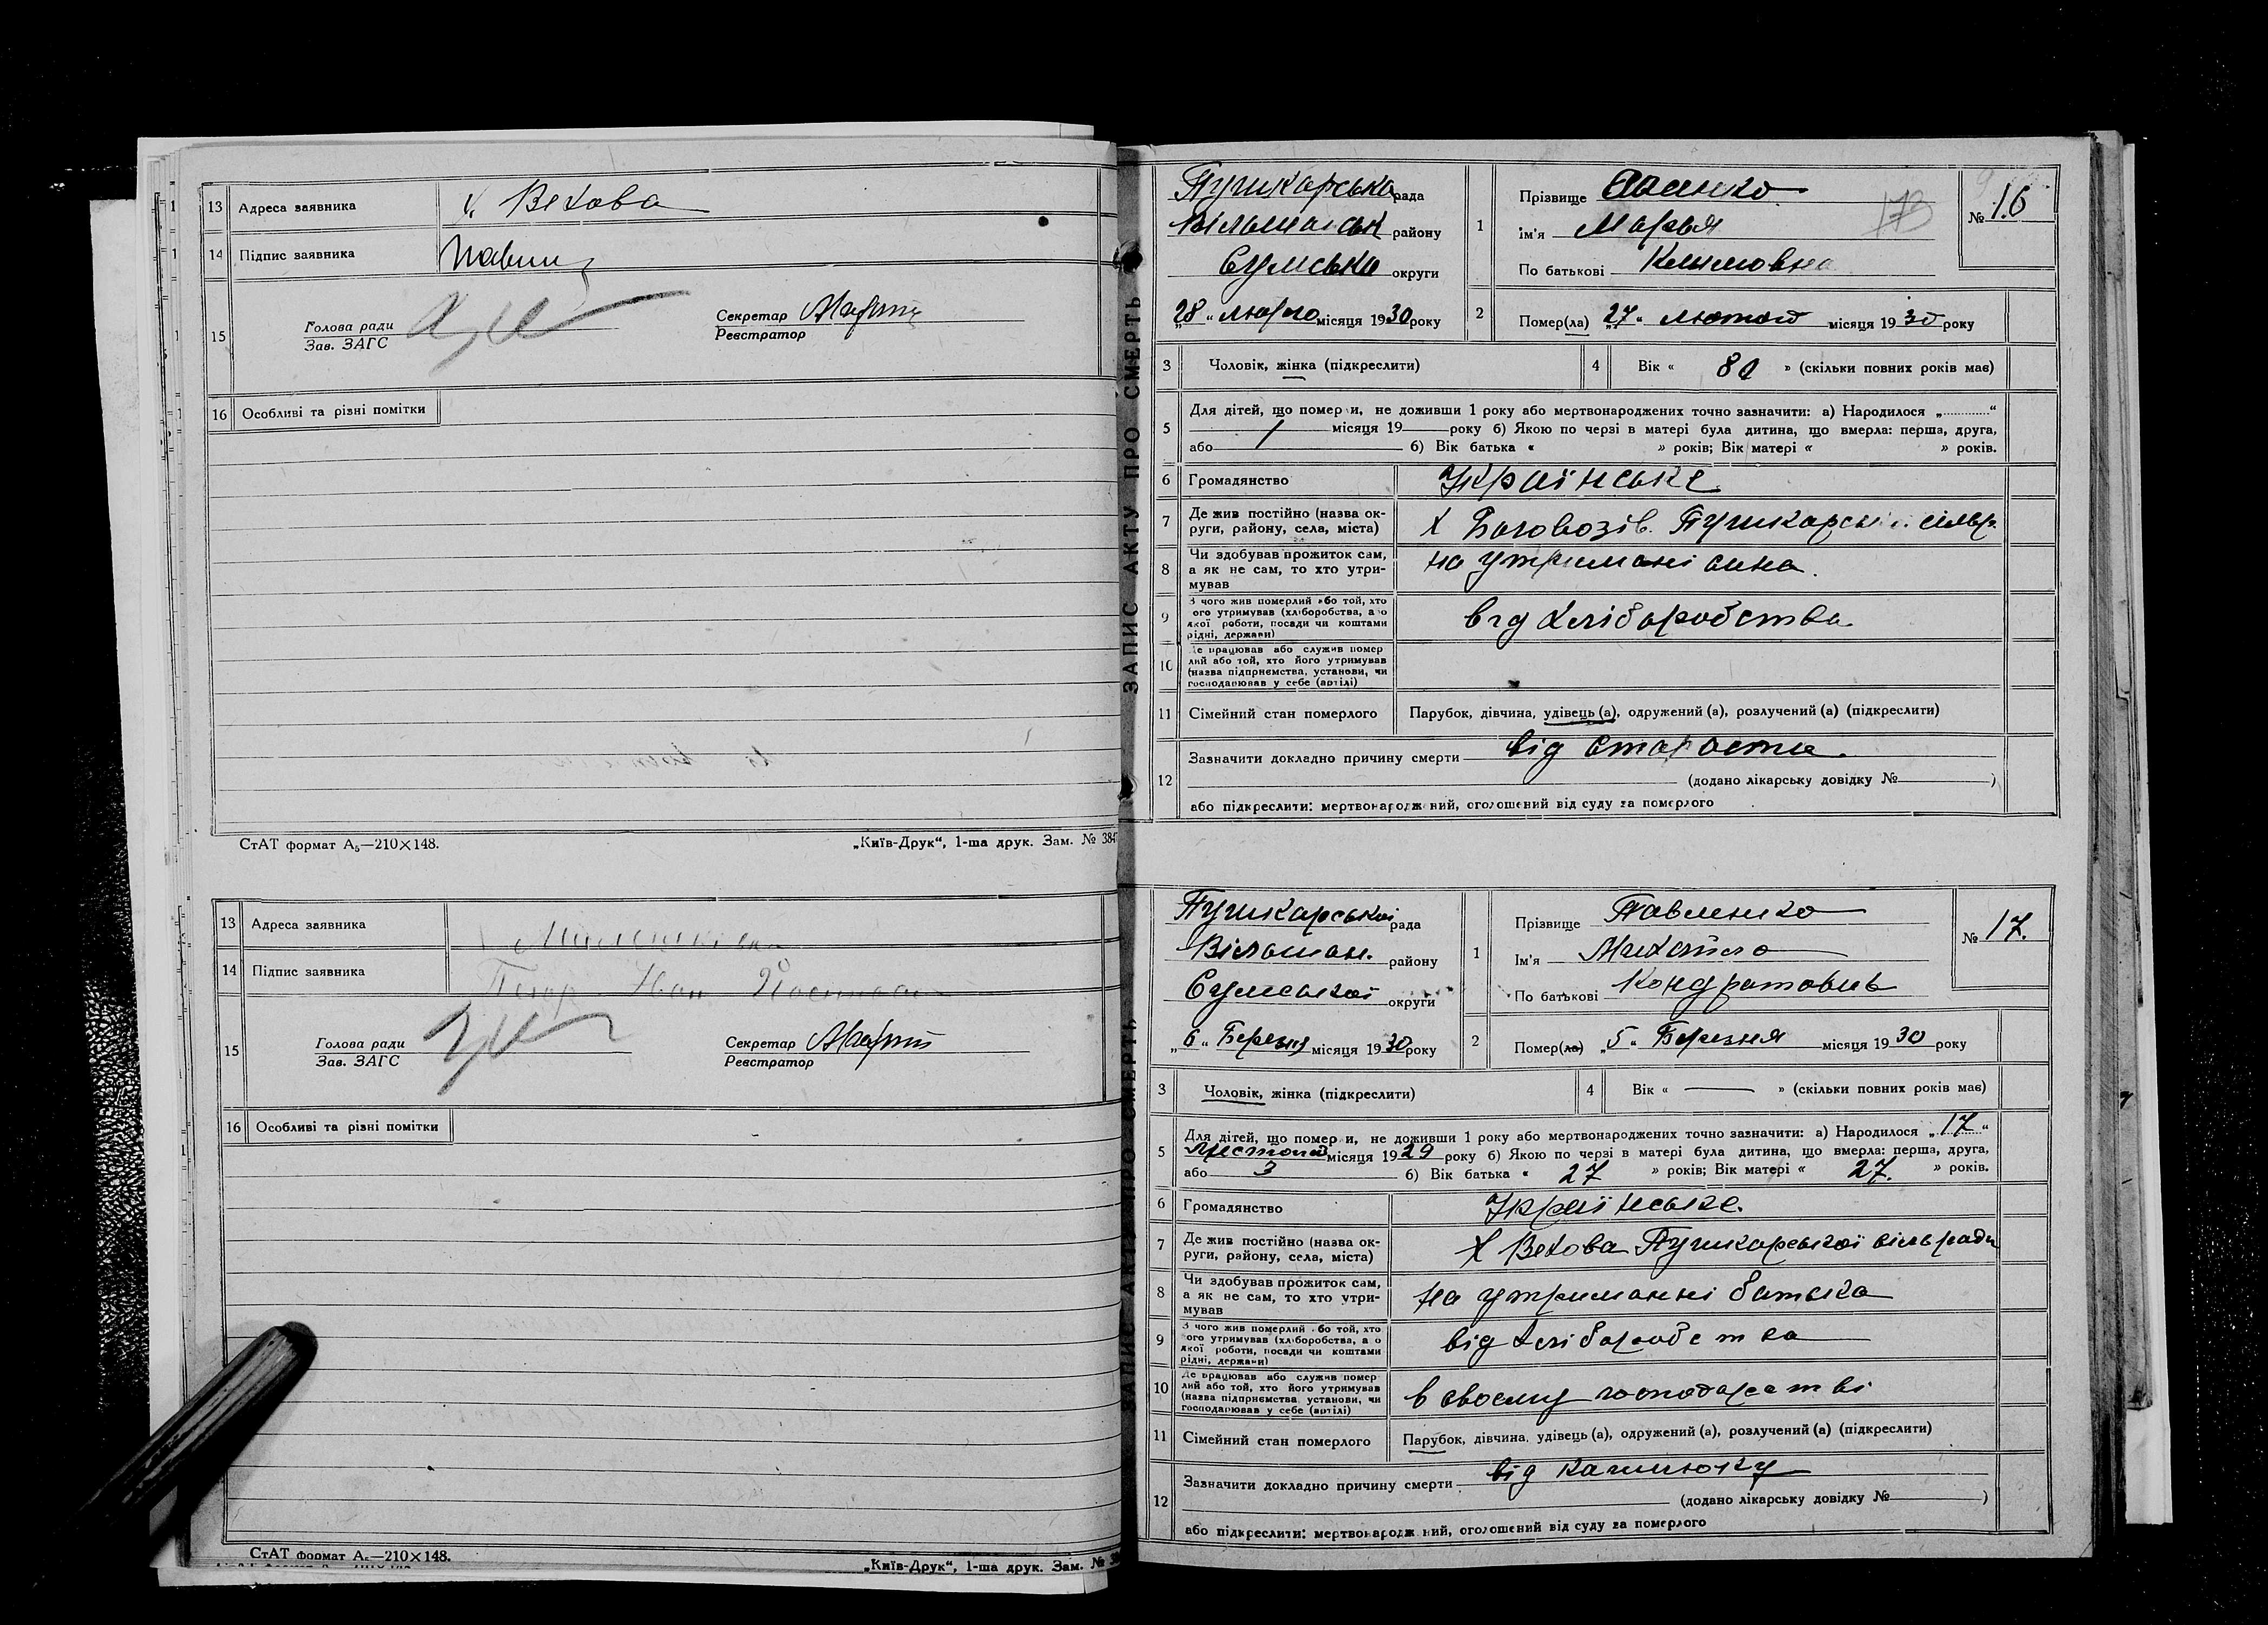 13 Адреса заявника х. Вехова
14 Підпис заявника
15 Голова ради
Зав. ЗАГС
Секретар
Реєстратор
16 Особливі та різні помітки
СтАТ формат А₅—210×148. „Київ-Друк“, 1-ша друк. Зам. № 384
13 Адреса заявника
14 Підпис заявника
15 Голова ради
Зав. ЗАГС
Секретар
Реєстратор
16 Особливі та різні помітки
СтАТ формат А₅—210×148. „Київ-Друк“, 1-ша друк. Зам. №
ЗАПИС АКТУ ПРО СМЕРТЬ
Пушкарська рада
Вільшанськ району
Сумська округи
„28“ лютого місяця 1930 року
1 Прізвище
ім'я Марья
По батькові Климовна
173
№ 16
2 Помер(ла) „27“ лютого місяця 1930 року
3 Чоловік, жінка (підкреслити)
4 Вік « 80 » (скільки повних років має)
5 Для дітей, що помер и, не доживши 1 року або мертвонароджених точно зазначити: а) Народилося „ “
місяця 19 року б) Якою по черзі в матері була дитина, що вмерла: перша, друга,
або б) Вік батька « » років; Вік матері « » років.
6 Громадянство Українське
7 Де жив постійно (назва ок-
руги, району, села, міста) х Боговозів. Пушкарськ. сільр.
8 Чи здобував прожиток сам,
а як не сам, то хто утри-
мував на утримані сина.
9 З чого жив померлий або той, хто
ого утримував (хліборобства, а о
якої роботи, посади чи коштами
рідні, держави) від хліборобства
10 Де працював або служив помер
лий або той, хто його утримував
(назва підприємства, установи, чи
господарював у себе (артілі)
11 Сімейний стан померлого Парубок, дівчина, удівець (а), одружений (а), розлучений (а) (підкреслити)
12 Зазначити докладно причину смерти від старости.
(додано лікарську довідку № )
або підкреслити: мертвонародж ний, оголошений від суду за померлого
ЗАПИС АКТУ ПРО СМЕРТЬ
Пушкарської рада
Вільшан. району
Сумської округи
„6“ Березня місяця 1930 року
1 Прізвище Павленко
Ім'я Михайло
По батькові Кондратовив
№ 17.
2 Помер(ла) „5“ Березня місяця 1930 року
3 Чоловік, жінка (підкреслити)
4 Вік « — » (скільки повних років має)
5 Для дітей, що помер и, не доживши 1 року або мертвонароджених точно зазначити: а) Народилося „17“
місяця 1929 року б) Якою по черзі в матері була дитина, що вмерла: перша, друга,
або 3 б) Вік батька « 27 » років; Вік матері « 27. » років.
6 Громадянство Українське.
7 Де жив постійно (назва ок-
руги, району, села, міста) х Вехова Пушкарської сільради
8 Чи здобував прожиток сам,
а як не сам, то хто утри-
мував на утриманні батька
9 З чого жив померлий або той, хто
ого утримував (хліборобства, а о
якої роботи, посади чи коштами
рідні, держави) від хліборобства
10 Де працював або служив помер
лий або той, хто його утримував
(назва підприємства, установи, чи
господарював у себе (артілі) в своєму господарстві
11 Сімейний стан померлого Парубок, дівчина, удівець (а), одружений (а), розлучений (а) (підкреслити)
12 Зазначити докладно причину смерти від кашлюку
(додано лікарську довідку № )
або підкреслити: мертвонародж ний, оголошений від суду за померлого